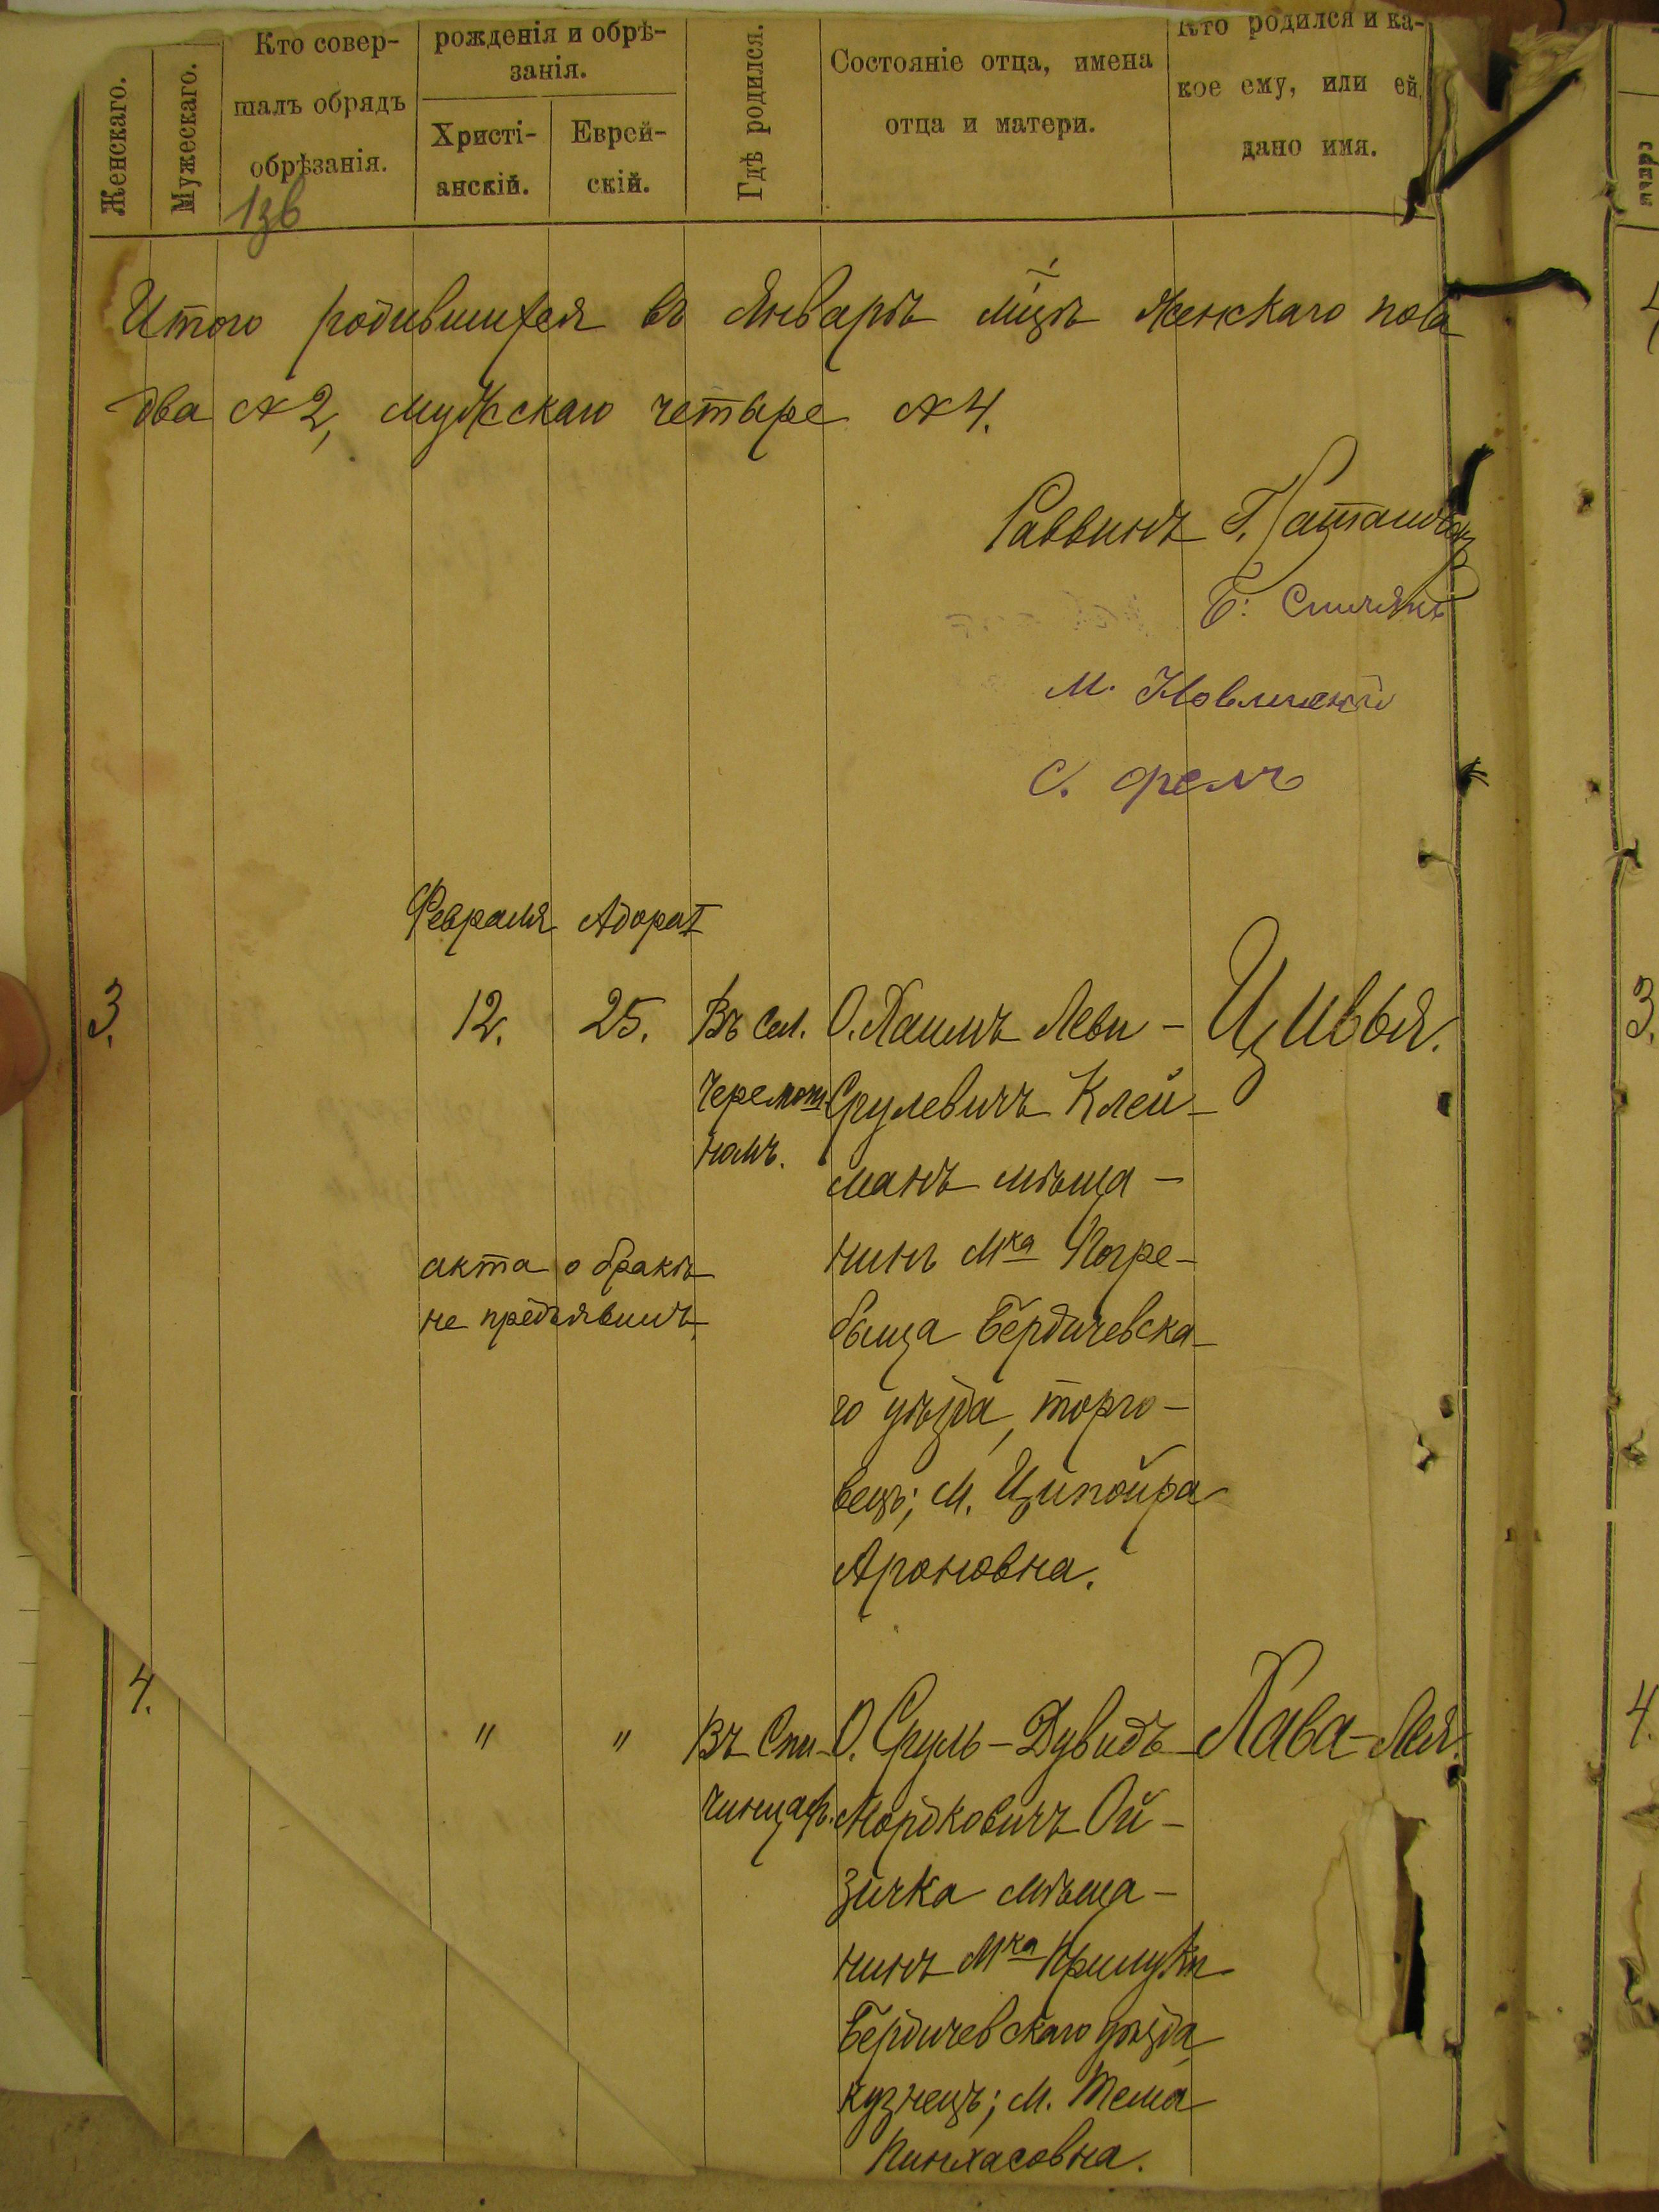 Женскаго.
Мужескаго.
Кто совер-
шалъ обрядъ
обрѣзанія.
рожденія и обрѣ-
занія.
Христі-
анскій.
Еврей-
скій.
Гдѣ родился.
Состояніе отца, имена
отца и матери.
Кто родился и ка-
кое ему, или ей
дано имя.
Итого родившихся въ Январѣ мцѣ женскаго пола
два № 2, мужскаго четыре № 4.
Раввинъ Г.
М.
С.
Февраля Адора I
3. 12. 25. Въ сел. О. Хаимъ Леви- Цивья.
Черемош- Срулевичъ Клей-
номъ.
манъ мѣща-
нинъ Мка Погре-
быща Бердичевска-
го уѣзда, торго-
вецъ; М. Ципойра
Ароновна.
акта о бракѣ
не предъявилъ
4. " " Въ Спи- О. Сруль-Дувидъ Хава-Лея.
чинцахъ. Мордковичъ Ой-
зичка мѣща-
нинъ Мка
Бердичевскаго уѣзда
кузнецъ; М. Тема
Пинхасовна.
3.
4.